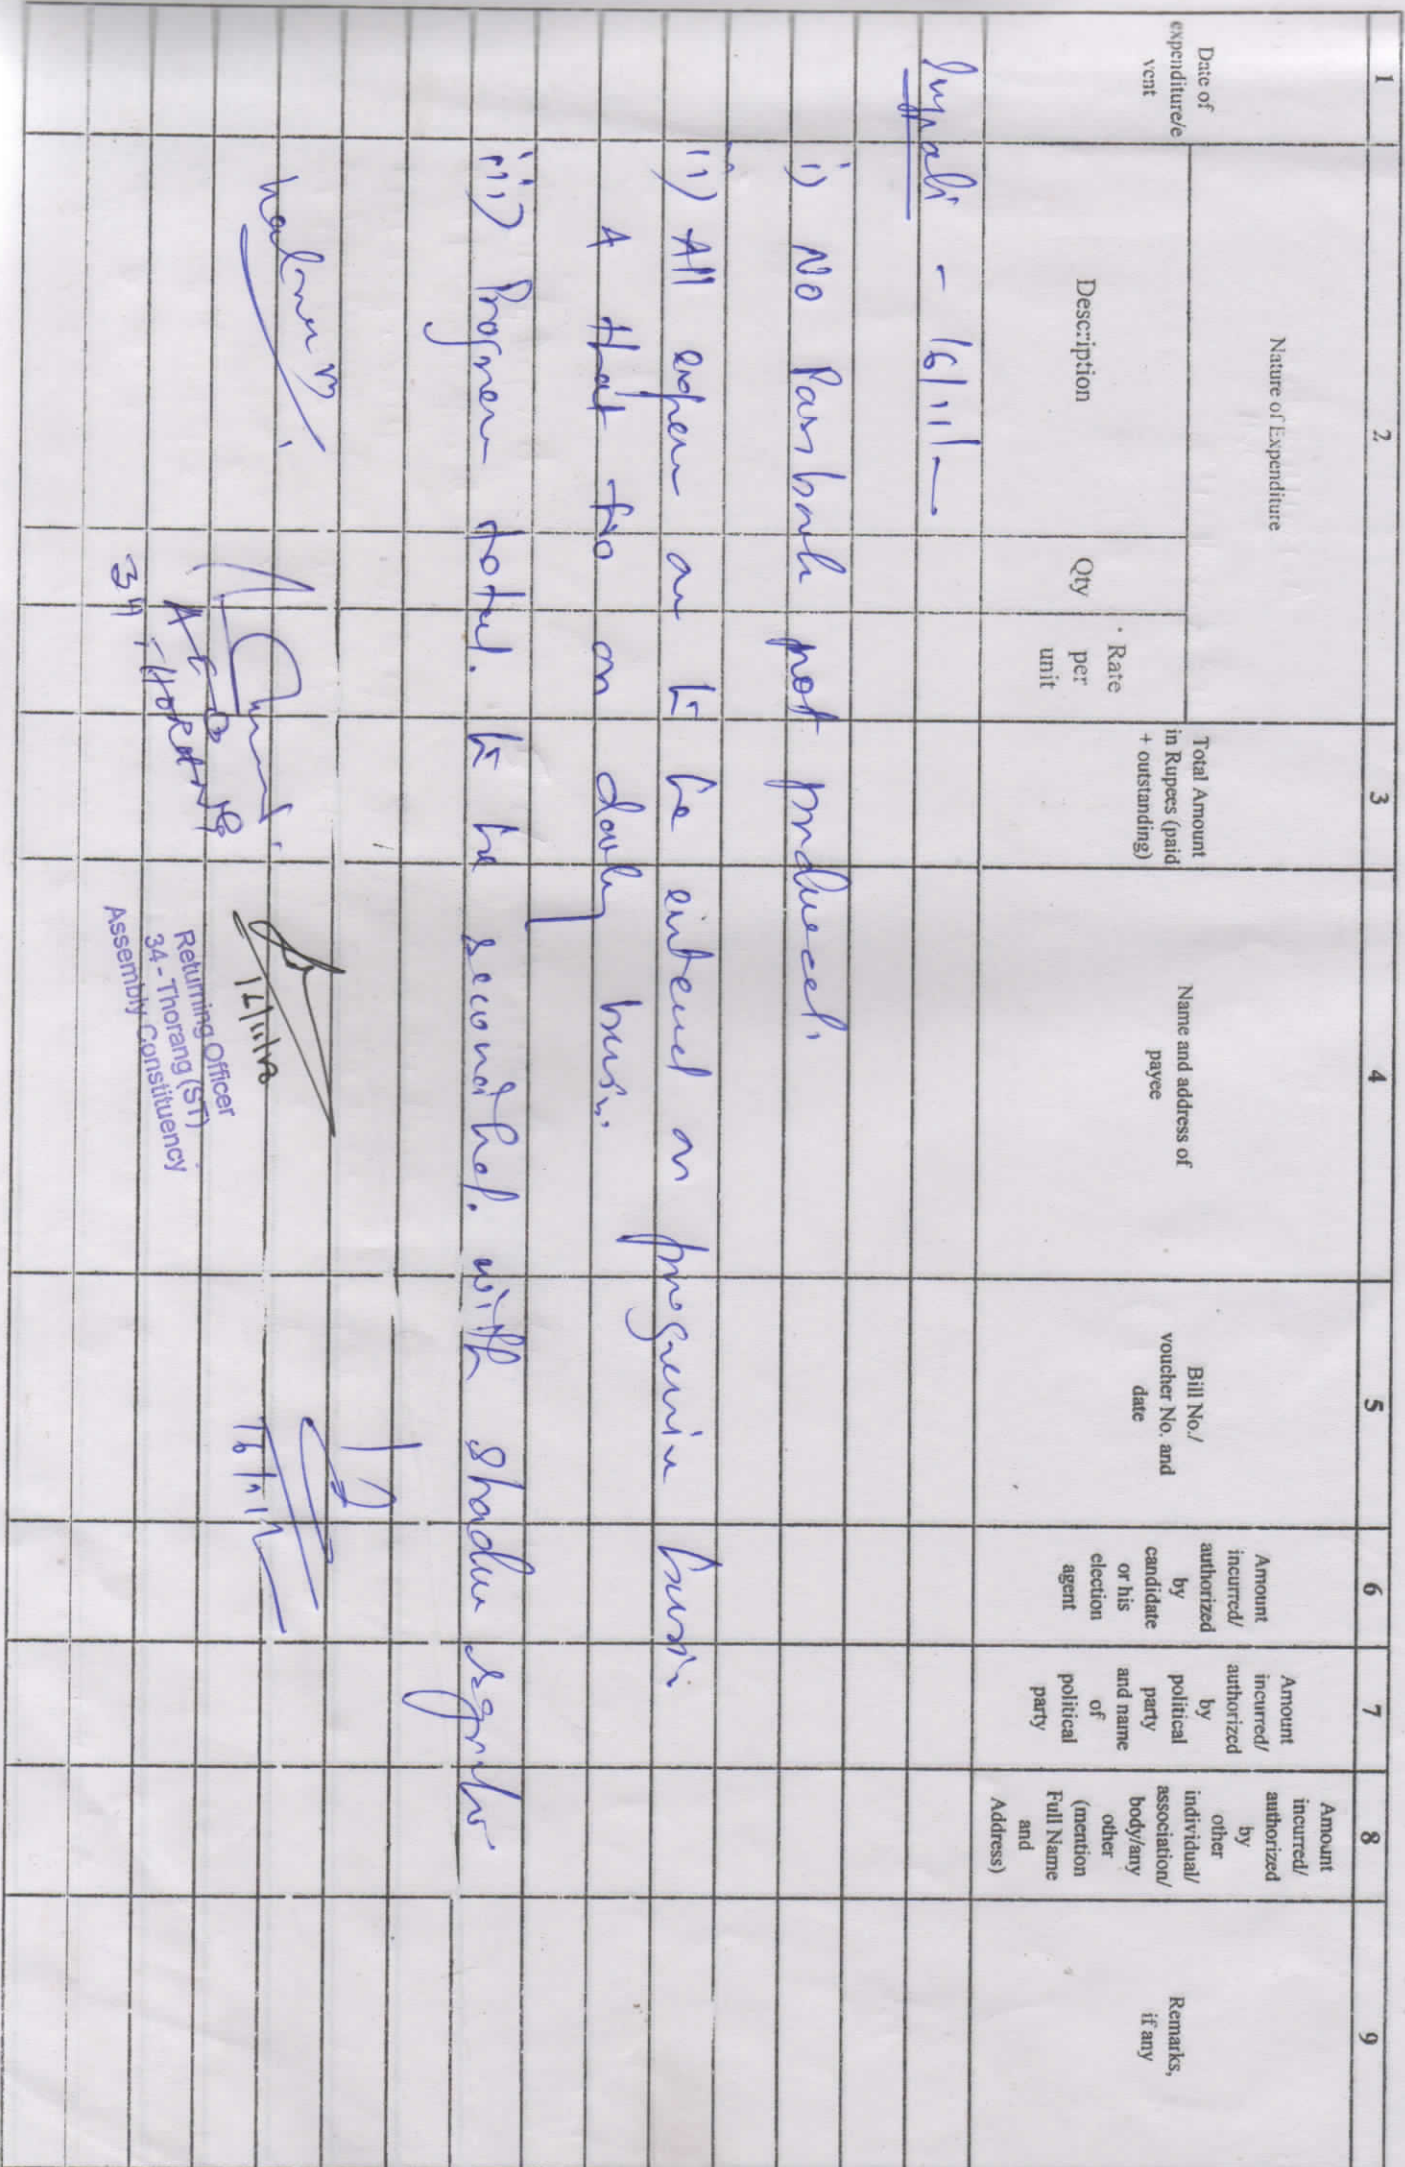 1 2 3 4 5 6 7 8 9
Date of
expenditure/e
vent
Nature of Expenditure
Description
Qty
Rate
per
unit
Total Amount
in Rupees (paid
+ outstanding)
Name and address of
payee
Bill No./
voucher No. and
date
Amount
incurred/
authorized
by
candidate
or his
election
agent
Amount
incurred/
authorized
by
political
party
and name
of
political
party
Amount
incurred/
authorized
by
other
individual/
association/
body/any
other
(mention
Full Name
and
Address)
Remarks,
if any
- 16/11/-
i) No Passbook not produced.
ii) All expen are to be entered on progressive basis
& that too on daily basis.
iii) Progressive total. to be reconciled. with shadow register
AEO
34, Thorang
16/11/18
Returning Officer
34 - Thorang (ST)
Assembly Constituency
16/11/18